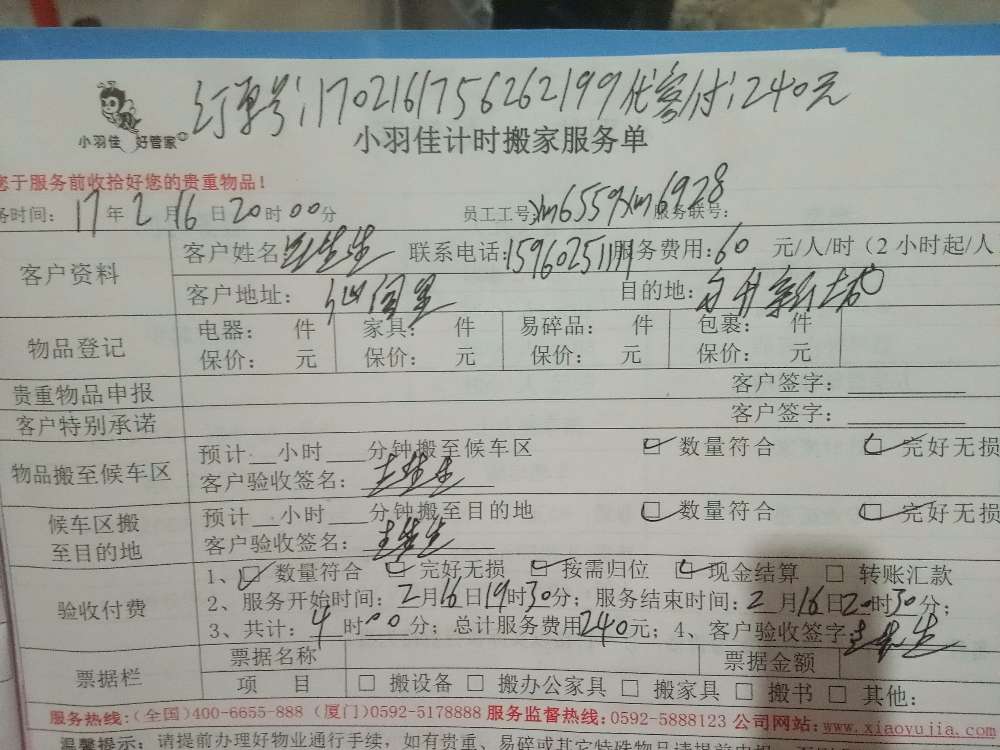 订单号:1702161756262199代客付:240元
小羽佳 好管家
小羽佳计时搬家服务单
您于服务前收拾好您的贵重物品!
务时间: 17年2月16日20时00分 员工工号:xm6559xm6928 服务联号:
客户资料
客户姓名王先生 联系电话:15960251111 服务费用:60 元/人/时(2小时起/人
客户地址: 仙阁里 目的地:
物品登记
电器: 件 家具: 件 易碎品: 件 包裹: 件
保价: 元 保价: 元 保价: 元 保价: 元
贵重物品申报 客户签字:
客户特别承诺 客户签字:
物品搬至候车区
预计__小时___分钟搬至候车区 数量符合 完好无损
客户验收签名: 王先生
候车区搬至目的地
预计__小时___分钟搬至目的地 数量符合 完好无损
客户验收签名: 王先生
验收付费
1、 数量符合 完好无损 按需归位 现金结算 □ 转账汇款
2、服务开始时间:2月16日19时30分; 服务结束时间:2月16日20时30分;
3、共计:4时00分; 总计服务费用240元; 4、客户验收签字:王先生
票据栏
票据名称 票据金额
项 目 □ 搬设备 □ 搬办公家具 □ 搬家具 □ 搬书 □ 其他:
服务热线:(全国)400-6655-888 (厦门)0592-5178888 服务监督热线:0592-5888123 公司网站:www.xiaoyujia.com
温馨提示: 请提前办理好物业通行手续,如有贵重、易碎或其它特殊物品请提前申报